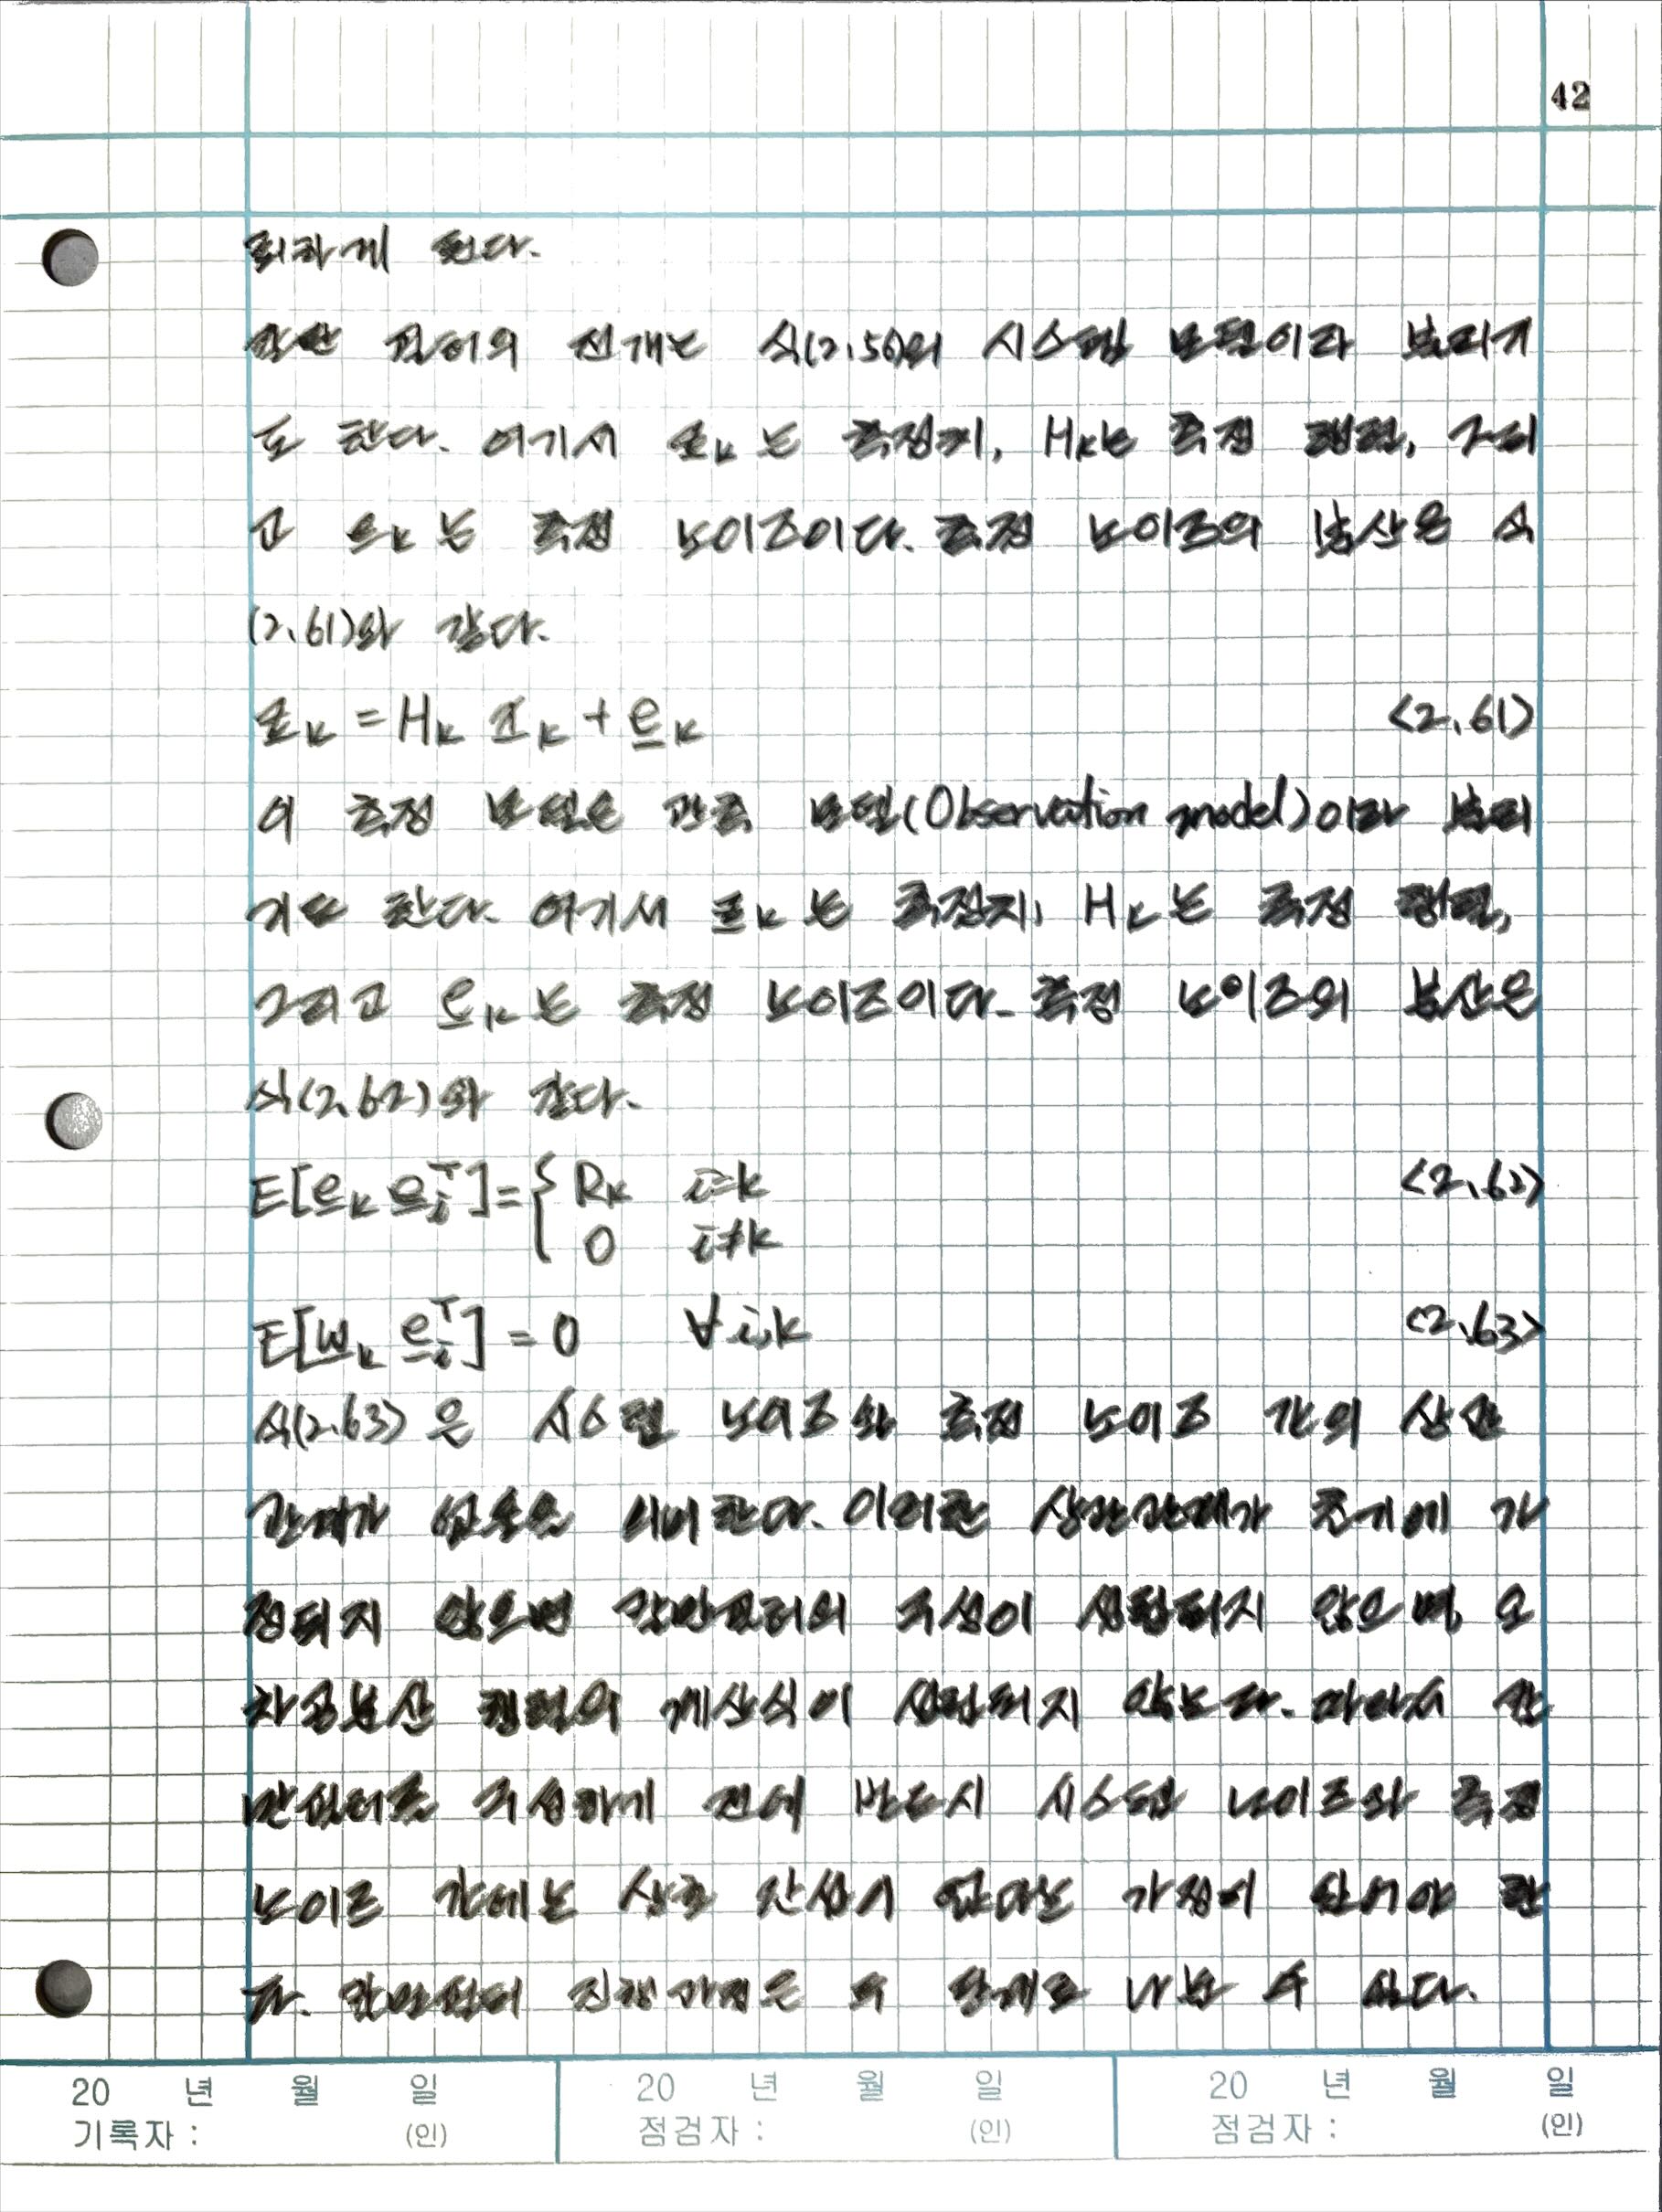 42
하게 된다.
칼만 필터의 전개는 식(2.56)의 시스템 모델이라 불리기
도 한다. 여기서 z̲ₖ는 측정치, Hₖ는 측정 행렬, 그리
고 e̲ₖ는 측정 노이즈이다. 측정 노이즈의 분산은 식
(2.61)와 같다.
z̲ₖ = Hₖ x̲ₖ + e̲ₖ <2.61>
이 측정 모델은 관측 모델(Observation model)이라 불리
기도 한다. 여기서 z̲ₖ는 측정치, Hₖ는 측정 행렬,
그리고 e̲ₖ는 측정 노이즈이다. 측정 노이즈의 분산은
식(2.62)와 같다.
E[e̲ₖ e̲ᵢᵀ] = { Rₖ i=k <2.62>
0 i≠k
E[w̲ₖ e̲ᵢᵀ] = 0 ∀i,k <2.63>
식(2.63)은 시스템 노이즈와 측정 노이즈 간의 상관
관계가 없음을 의미한다. 이러한 상관관계가 초기에 가
정되지 않으면 칼만필터의 구성이 성립되지 않으며 오
차공분산 행렬의 계산식이 성립되지 않는다. 따라서 칼
만필터를 구성하기 전에 반드시 시스템 노이즈와 측정
노이즈 간에는 상호 간섭이 없다는 가정이 있어야 한
다. 칼만필터 진행과정은 두 단계로 나눌 수 있다.
20 년 월 일 20 년 월 일 20 년 월 일
기록자 : (인) 점검자 : (인) 점검자 : (인)